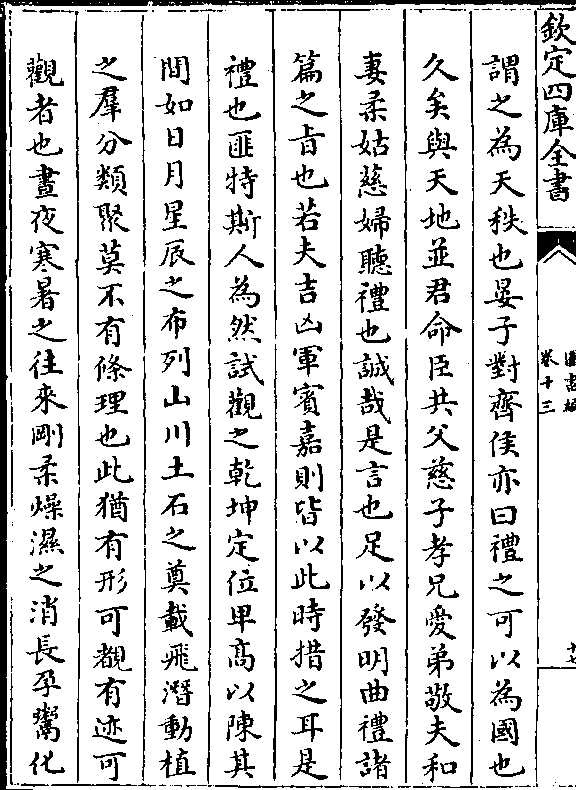 欽定四庫全書
卷十三
謂之為天秩也晏子對齊侯亦曰禮之可以為國也
久矣與天地並君命臣共父慈子孝兄愛弟敬夫和
妻柔姑慈婦聽禮也誠哉是言也足以發明曲禮諸
篇之㫖也若夫吉凶軍賓嘉則皆以此時措之耳是
禮也匪特斯人為然試觀之乾坤定位卑髙以陳其
間如日月星辰之布列山川土石之奠載飛潛動植
之羣分類聚莫不有條理也此猶有形可覩有迹可
觀者也晝夜寒暑之往來剛柔燥濕之消長孕鬻化